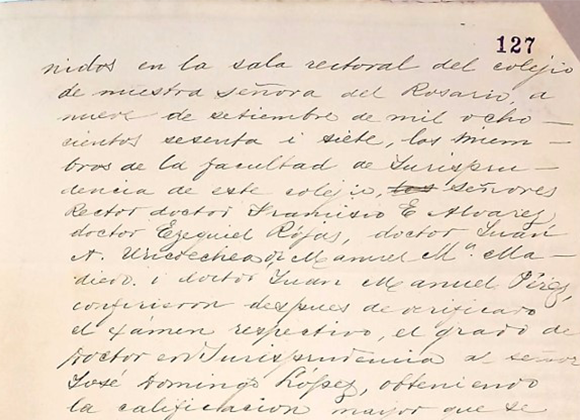 127
nidos en la sala rectoral del colejio
de nuestra señora del Rosario, a
nueve de setiembre de mil ocho—
cientos sesenta i siete, los miem—
bros de la facultad de Jurispru—
dencia de este colejio, los señores
Rector doctor Francisco E. Alvarez,
doctor Ezequiel Rójas, doctor Juan
A. Uricoechea, Manuel Mª. Ma—
diedo i doctor Juan Manuel Pérez,
confirieron despues de verificado
el exámen respectivo, el grado de
Doctor en Jurisprudencia al señor
José Domingo López, obteniendo
la calificacion mayor que se